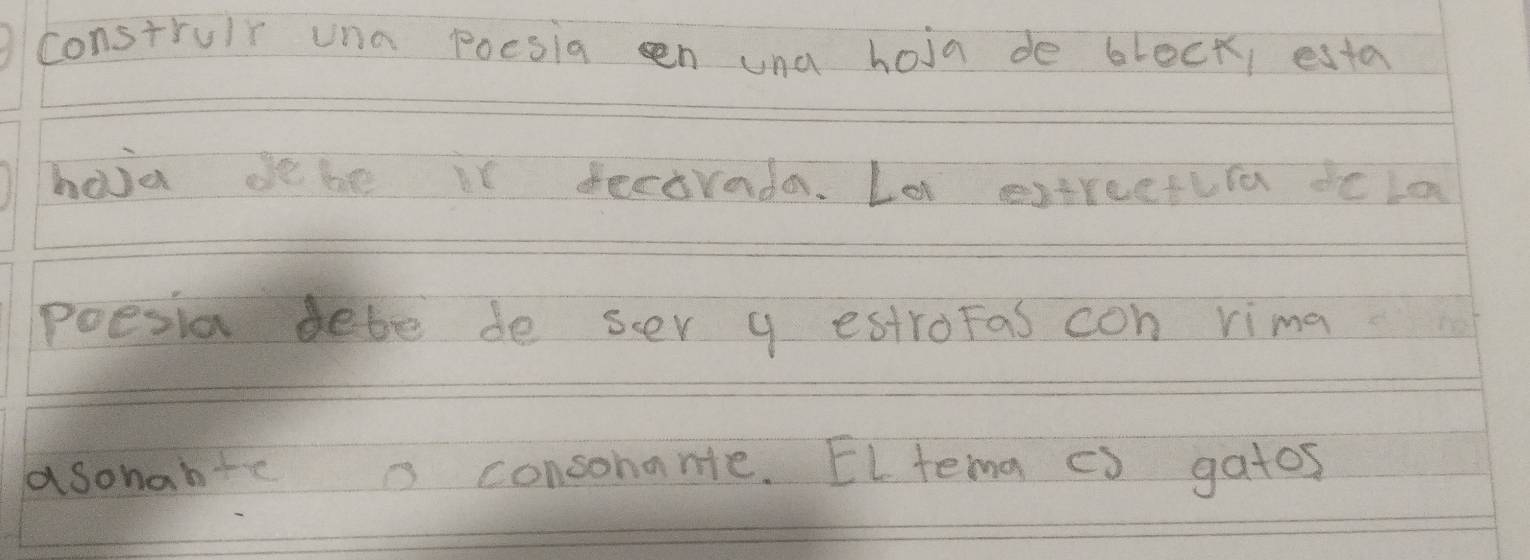 construir una Poesia en una hoja de block, esta
hoja debe ir decorada. La estructura de la
Poesia debe de ser 4 estrofas con rima
asonante o consonante. EL tema es gatos